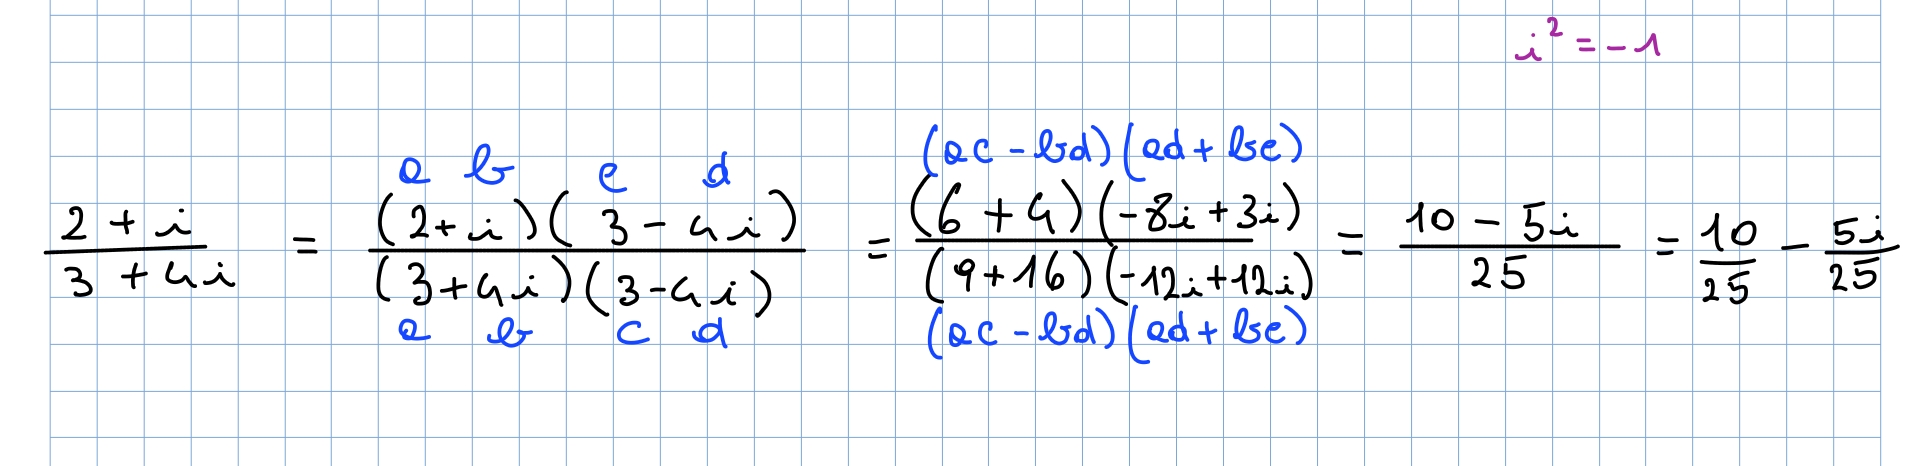 i² = -1
a b c d (ac - bd)(ad + bc)
(2+i)/(3+4i) = ((2+i)(3-4i))/((3+4i)(3-4i)) = ((6+4)(-8i+3i))/((9+16)(-12i+12i)) = (10-5i)/25 = 10/25 - 5i/25
a b c d (ac - bd)(ad + bc)